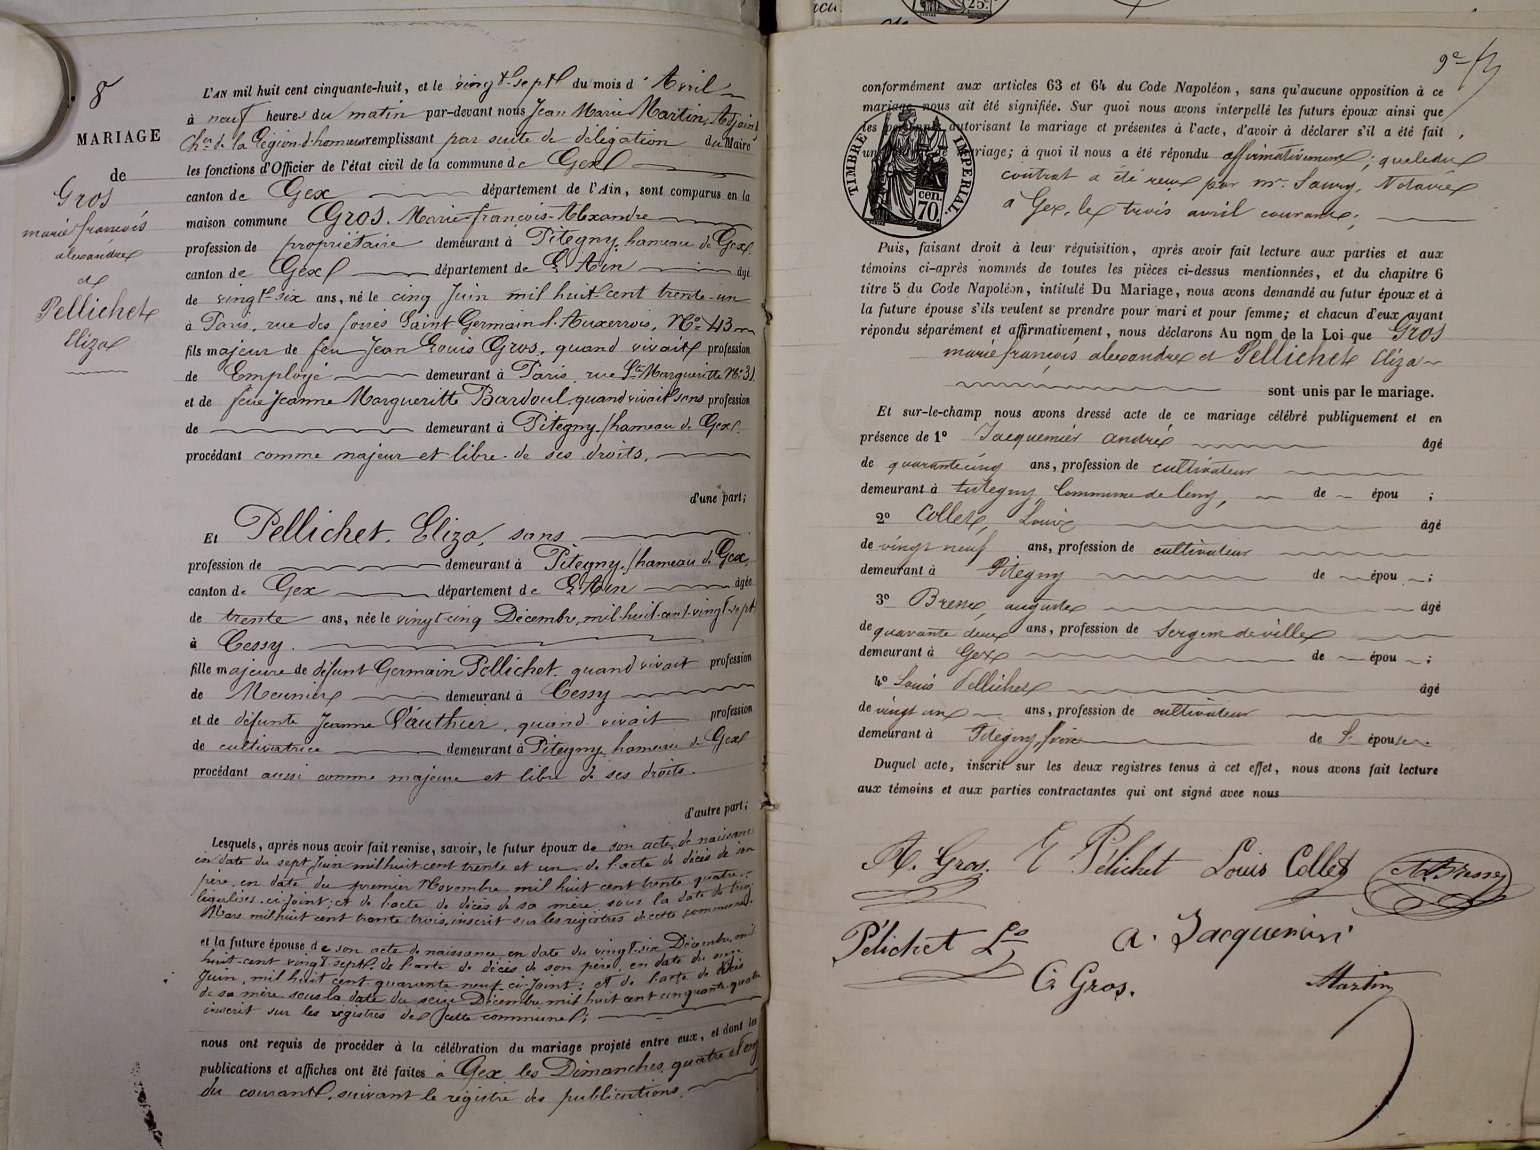 8
MARIAGE
de
Gros
marie françois
alexandre
et
Pellichet
Eliza
L'AN mil huit cent cinquante-huit, et le vingt-sept du mois d'Avril
à neuf heures du matin par-devant nous Jean Marie Martin, Adjoint
Cher de la Légion d'honneur remplissant par suite de délégation du Maire
les fonctions d'Officier de l'état civil de la commune de Gex
canton de Gex département de l'Ain, sont comparus en la
maison commune Gros. Marie-françois-Alexandre
profession de propriétaire demeurant à Pitegny, hameau de Gex
canton de Gex département de L'Ain âgé
de vingt-six ans, né le cinq Juin mil huit-cent trente-un
à Paris, rue des fossés Saint Germain l'Auxerrois, No 43
fils majeur de feu Jean Louis Gros, quand vivait profession
de Employé demeurant à Paris, rue Ste Margueritte No 31
et de feue Jeanne Margueritte Bardoul, quand vivait sans profession
de demeurant à Pitegny, hameau de Gex.
procédant comme majeur et libre de ses droits.
d'une part;
Et Pellichet. Eliza, sans
profession de demeurant à Pitegny, hameau de Gex,
canton de Gex département de L'Ain âgée
de trente ans, née le vingt-cinq Décembre, mil-huit-cent-vingt-sept
à Cessy.
fille majeure de défunt Germain Pellichet, quand vivait profession
de Meunier demeurant à Cessy
et de défunte Jeanne Vauthier, quand vivait profession
de cultivatrice demeurant à Pitegny, hameau de Gex
procédant aussi comme majeure et libre de ses droits.
d'autre part;
Lesquels, après nous avoir fait remise, savoir, le futur époux de son acte de naissance
en date du sept Juin mil huit cent trente et un de l'acte de décès de son
père, en date du premier Novembre mil huit cent trente quatre
légalisés, ci joint; et de l'acte de décès de sa mère, sous la date de
Mars mil huit cent trente trois, inscrit sur les registres de cette commune
et la future épouse de son acte de naissance en date du vingt-six Décembre, mil
huit-cent vingt-sept, de l'acte de décès de son père, en date du onze
Juin, mil huit cent quarante neuf ci-joint; et de l'acte de décès
de sa mère sous la date du seize Décembre mil huit cent cinquante-quatre
inscrit sur les registres de cette commune;
nous ont requis de procéder à la célébration du mariage projeté entre eux, et dont les
publications et affiches ont été faites à Gex les Dimanches, quatre et onze
du courant, suivant le registre des publications.
9e
conformément aux articles 63 et 64 du Code Napoléon, sans qu'aucune opposition à ce
mariage nous ait été signifiée. Sur quoi nous avons interpellé les futurs époux ainsi que
les personnes autorisant le mariage et présentes à l'acte, d'avoir à déclarer s'il a été fait
un de mariage; à quoi il nous a été répondu affirmativement; que le dit
contrat a été reçu par mr. Notaire
à Gex, le trois avril courant;
TIMBRE IMPÉRIAL
cen. 70
Puis, faisant droit à leur réquisition, après avoir fait lecture aux parties et aux
témoins ci-après nommés de toutes les pièces ci-dessus mentionnées, et du chapitre 6
titre 5 du Code Napoléon, intitulé Du Mariage, nous avons demandé au futur époux et à
la future épouse s'ils veulent se prendre pour mari et pour femme; et chacun d'eux ayant
répondu séparément et affirmativement, nous déclarons Au nom de la Loi que Gros
marie françois alexandre et Pellichet Eliza
sont unis par le mariage.
Et sur-le-champ nous avons dressé acte de ce mariage célébré publiquement et en
présence de 1o Jacquemier andré âgé
de quarante cinq ans, profession de cultivateur
demeurant à Commune de de épou ;
2o Collet, Louis âgé
de vingt neuf ans, profession de cultivateur
demeurant à Pitegny de épou ;
3o auguste âgé
de quarante deux ans, profession de Sergent de ville
demeurant à Gex de épou ;
4o Louis Pellichet âgé
de vingt un ans, profession de cultivateur
demeurant à Pitegny, frère de l' épouse.
Duquel acte, inscrit sur les deux registres tenus à cet effet, nous avons fait lecture
aux témoins et aux parties contractantes qui ont signé avec nous
A. Gros. E Pélichet Louis Collet
Pélichet Ls a. Jacquemier
Gros. Martin